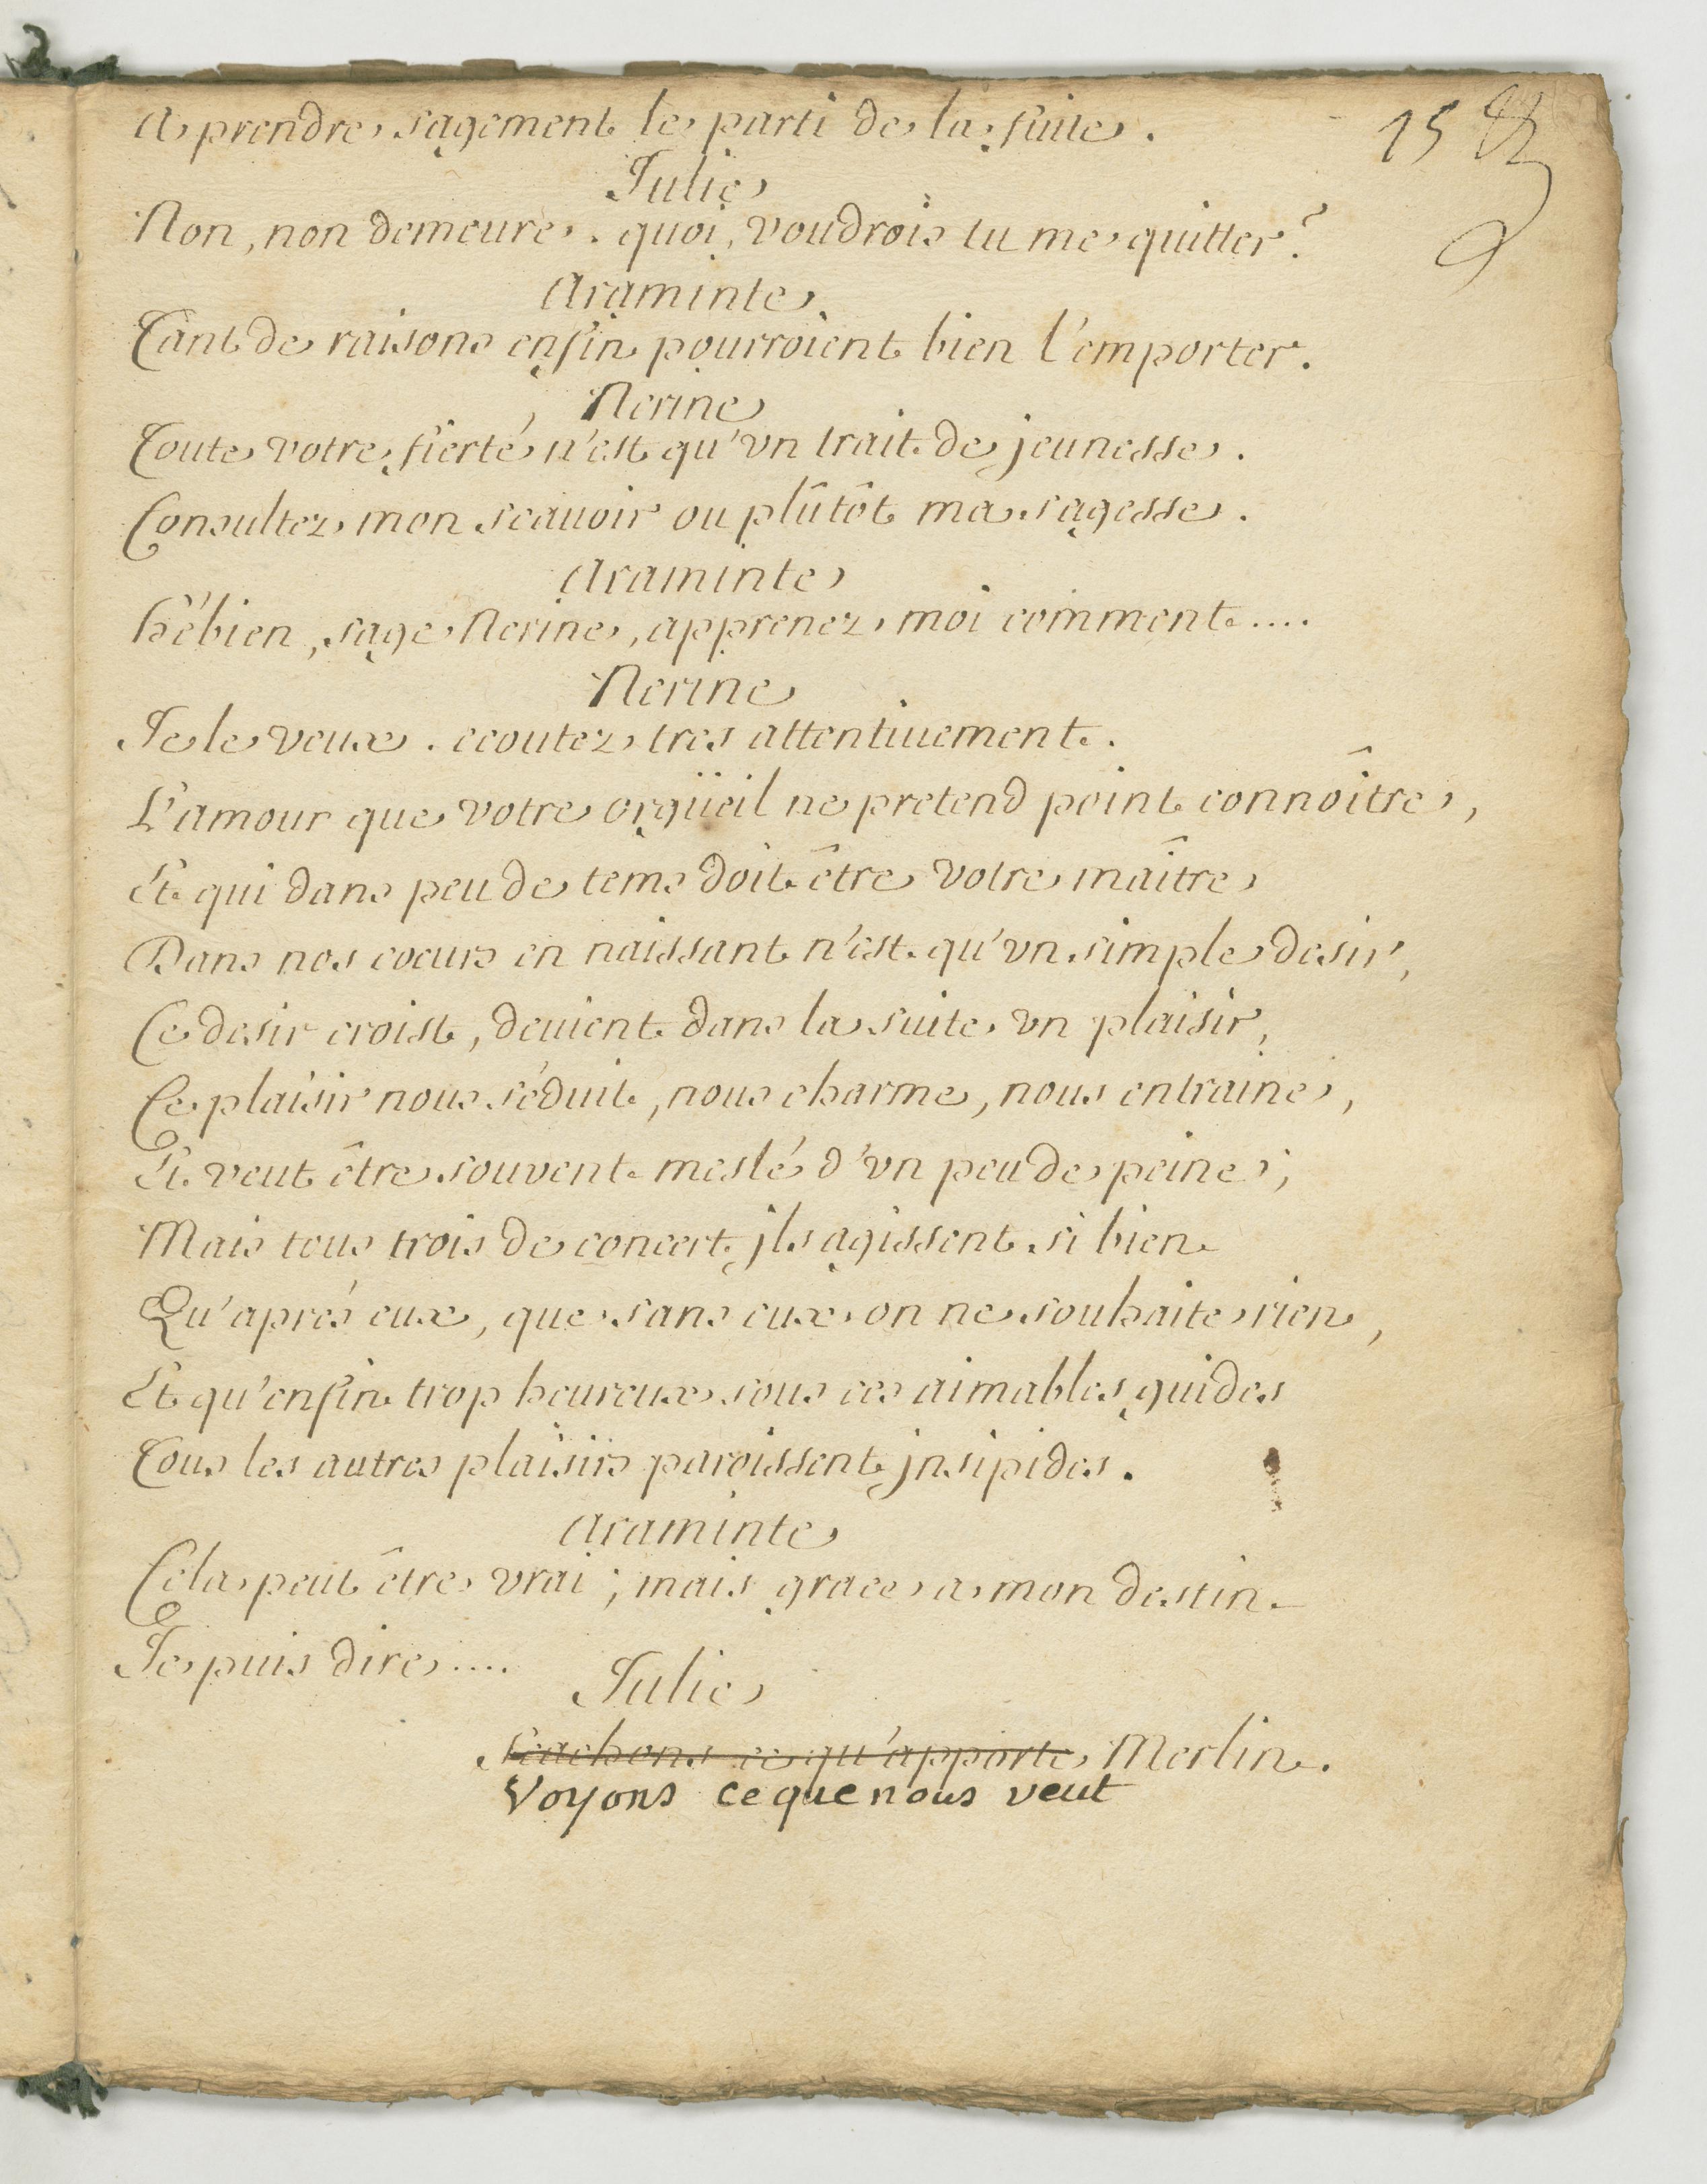 A prendre sagement le parti de la fuite.
15
Julie
Non, non demeure. quoi, voudrois tu me quitter?
Araminte
Tant de raisons enfin pourroient bien l'emporter.
Nerine
Toute votre fierté n'est qu'vn trait de jeunesse.
Consultez mon scauoir ou plûtôt ma sagesse.
Araminte
hé bien, sage Nerine, apprenez moi comment....
Nerine
Je le veux. ecoutez tres attentiuement.
L'amour que votre orgüeil ne pretend point connoître,
Et qui dans peu de tems doit être votre maître
Dans nos coeurs en naissant n'est qu'vn simple desir,
Ce desir croist, deuient dans la suite vn plaisir,
Ce plaisir nous séduit, nous charme, nous entraine,
Et veut être souvent meslé d'vn peu de peine;
Mais tous trois de concert jls agissent si bien
Qu'aprés eux, que sans eux on ne souhaite rien,
Et qu'enfin trop heureux sous ces aimables guides
Tous les autres plaisirs paroissent jnsipides.
Araminte
Cela peut être vrai; mais grace a mon destin
Je puis dire....
Julie
Scachons ce qu'apporte Merlin.
Voyons ce que nous veut